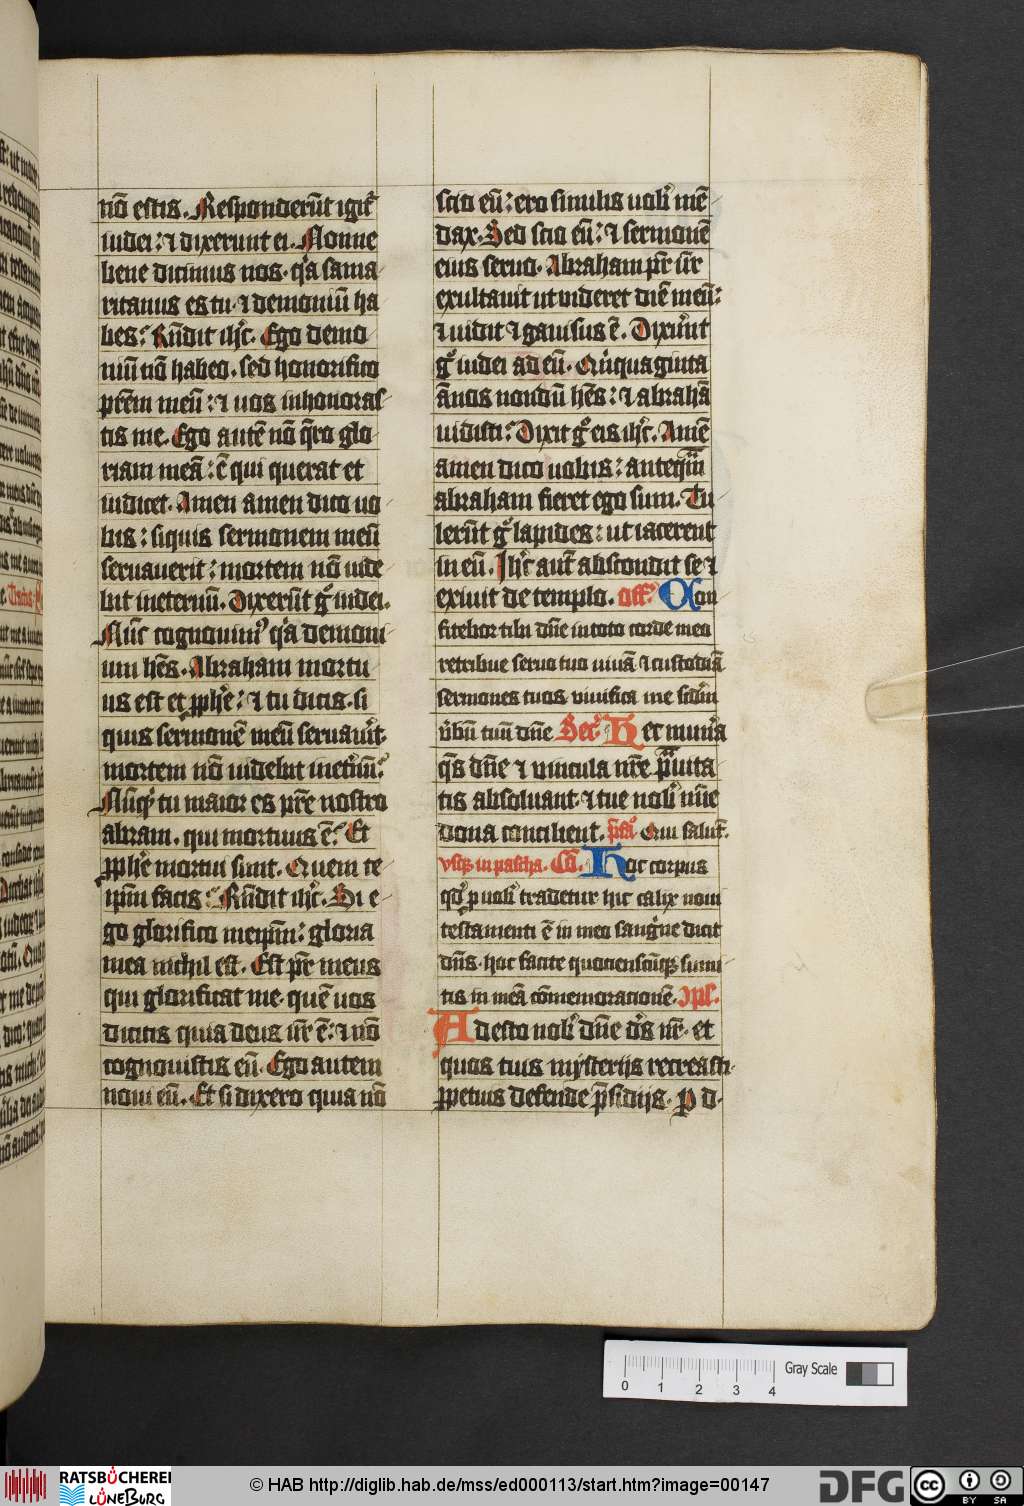 nō estis. Responderūt igit᷑
iudei: ⁊ dixerunt ei. Nonne
bene dicimus nos. q̇a sama
ritanus es tu. ⁊ demoniū ha
bes? Rn̄dit ihc̄. Ego demo
niū nō habeo. sed honorifico
pr̄em meū: ⁊ uos inhonoras
tis me. Ego autē nō q̄ro glo
riam meā: ē qui querat et
iudicet. Amen amen dico uo
bis: siquis sermonem meū
seruauerit: mortem nō uide
bit ineternū. Dixerūt gͦ iudei.
Nūc cognouimꝰ q̇a demoni
um hēs. Abraham mortu
us est et ꝓphe: ⁊ tu dicis. si
quis sermonē meū seruau̾it
mortem nō uidebit inet̾nū?
Nūqͥ tu maior es pr̄e nostro
abraam. qui mortuus ē? Et
ꝓphē mortui sunt. Quem te
ip̄m facis? Rn̄dit ihc̄. Si e
go glorifico meip̄m: gloria
mea nichil est. Est pr̄ meus
qui glorificat me. quē uos
dicitis quia deus ur̄ ē: ⁊ nō
cognouistis eū. Ego autem
noui eū. Et si dixero quia nō
scio eū: ero similis uobͥ mē
dax. Sed scio eū: ⁊ sermonē
eius seruo. Abraham pr̄ ur̄
exultauit ut uideret diē meū:
⁊ uidit ⁊ gauisus ē. Dixer̄ut
gͦ iudei ad eū. Quīquaginta
ānos nondū hēs: ⁊ abrahā
uidisti? Dixit gͦ eis ihc̄. Amē
amen dico uobis: anteq̄m
abraham fieret ego sum. Tu
lerūt gͦ lapides: ut iacerent
in eū. Ihc̄ aut̄ abscondit se ⁊
exiuit de templo. off̄. Con
fitebor tibi dn̄e in toto corde meo
retribue seruo tuo uiuā ⁊ custodiā
sermones tuos viuifica me scd̄m
v̾bū tuū dn̄e Secr̄. Hec mun̾a
qs̄ dn̄e ⁊ vincula nr̄e p̄uita
tis absoluant. ⁊ tue nobͥ mīe
dona concilient. p̄fā Qui salut̄.
vsqꝫ in pascha. Cō. Hoc corpus
qd̄ p uobͥ tradetur hic calix noui
testamenti ē in meo sangu̾ie dicit
dn̄s. hoc facite quociēscūqꝫ sumi
tis in meā cōmemoracionē. 9pl̄.
Adesto nobͥ dn̄e ds̄ nr̄. et
quos tuis mysterijs recreasti
ꝑpetuis defende p̄sidijs. P d.
0 1 2 3 4
Gray Scale
RATSBÜCHEREI
LÜNEBURG
© HAB http://diglib.hab.de/mss/ed000113/start.htm?image=00147
DFG
cc BY SA